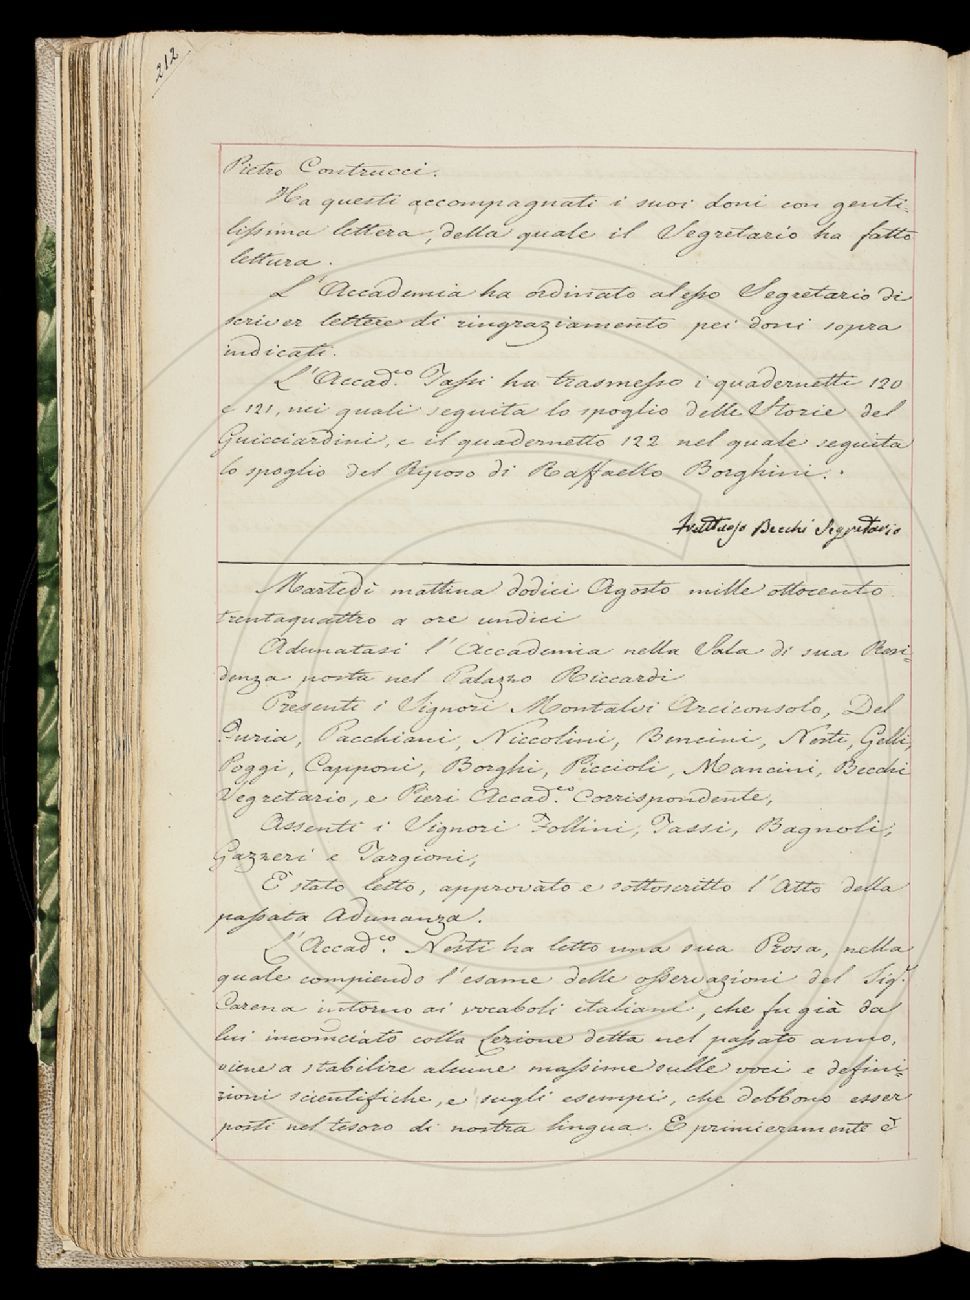 212
Pietro Contrucci.
Ha questi accompagnati i suoi doni con genti-
lissima lettera, della quale il Segretario ha fatto
lettura.
L'Accademia ha ordinato al esso Segretario di
scriver lettere di ringraziamento pei doni sopra
indicati.
L'Accad.co Tassi ha trasmesso i quadernetti 120
e 121, nei quali seguita lo spoglio delle Storie del
Guicciardini, e il quadernetto 122 nel quale seguita
lo spoglio del Riposo di Raffaello Borghini.
Fruttuoso Becchi Segretario
Martedì mattina dodici Agosto mille ottocento
trentaquattro a ore undici
Adunatasi l'Accademia nella Sala di sua Resi-
denza posta nel Palazzo Riccardi
Presenti i Signori Montalvi Arciconsolo, Del
Furia, Pacchiani, Niccolini, Bencini, Nesti, Gelli,
Poggi, Capponi, Borghi, Piccioli, Mancini, Becchi
Segretario, e Pieri Accad.co Corrispondente,
Assenti i Signori Follini, Tassi, Bagnoli,
Gazzeri e Targioni,
È stato letto, approvato e sottoscritto l'Atto della
passata Adunanza.
L'Accad.co Nesti ha letto una sua Prosa, nella
quale compiendo l'esame delle osservazioni del Sig.r
Carena intorno ai vocaboli italiani, che fu già da
lui incominciato colla Lezione detta nel passato anno,
viene a stabilire alcune massime sulle voci e defini-
zioni scientifiche, e sugli esempi, che debbono esser
posti nel tesoro di nostra lingua. E primieramente è